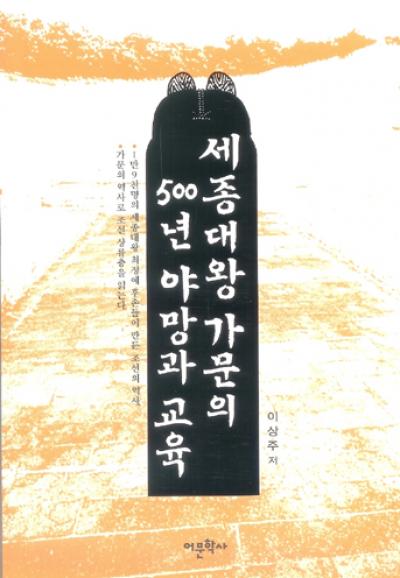 세종대왕 가문의
500년 야망과 교육
•1만9천명의 세종대왕 최정예 후손들이 만든 조선의 역사.
•가문의 역사로 조선 상류층을 읽는다.
이상주 저
어문학사